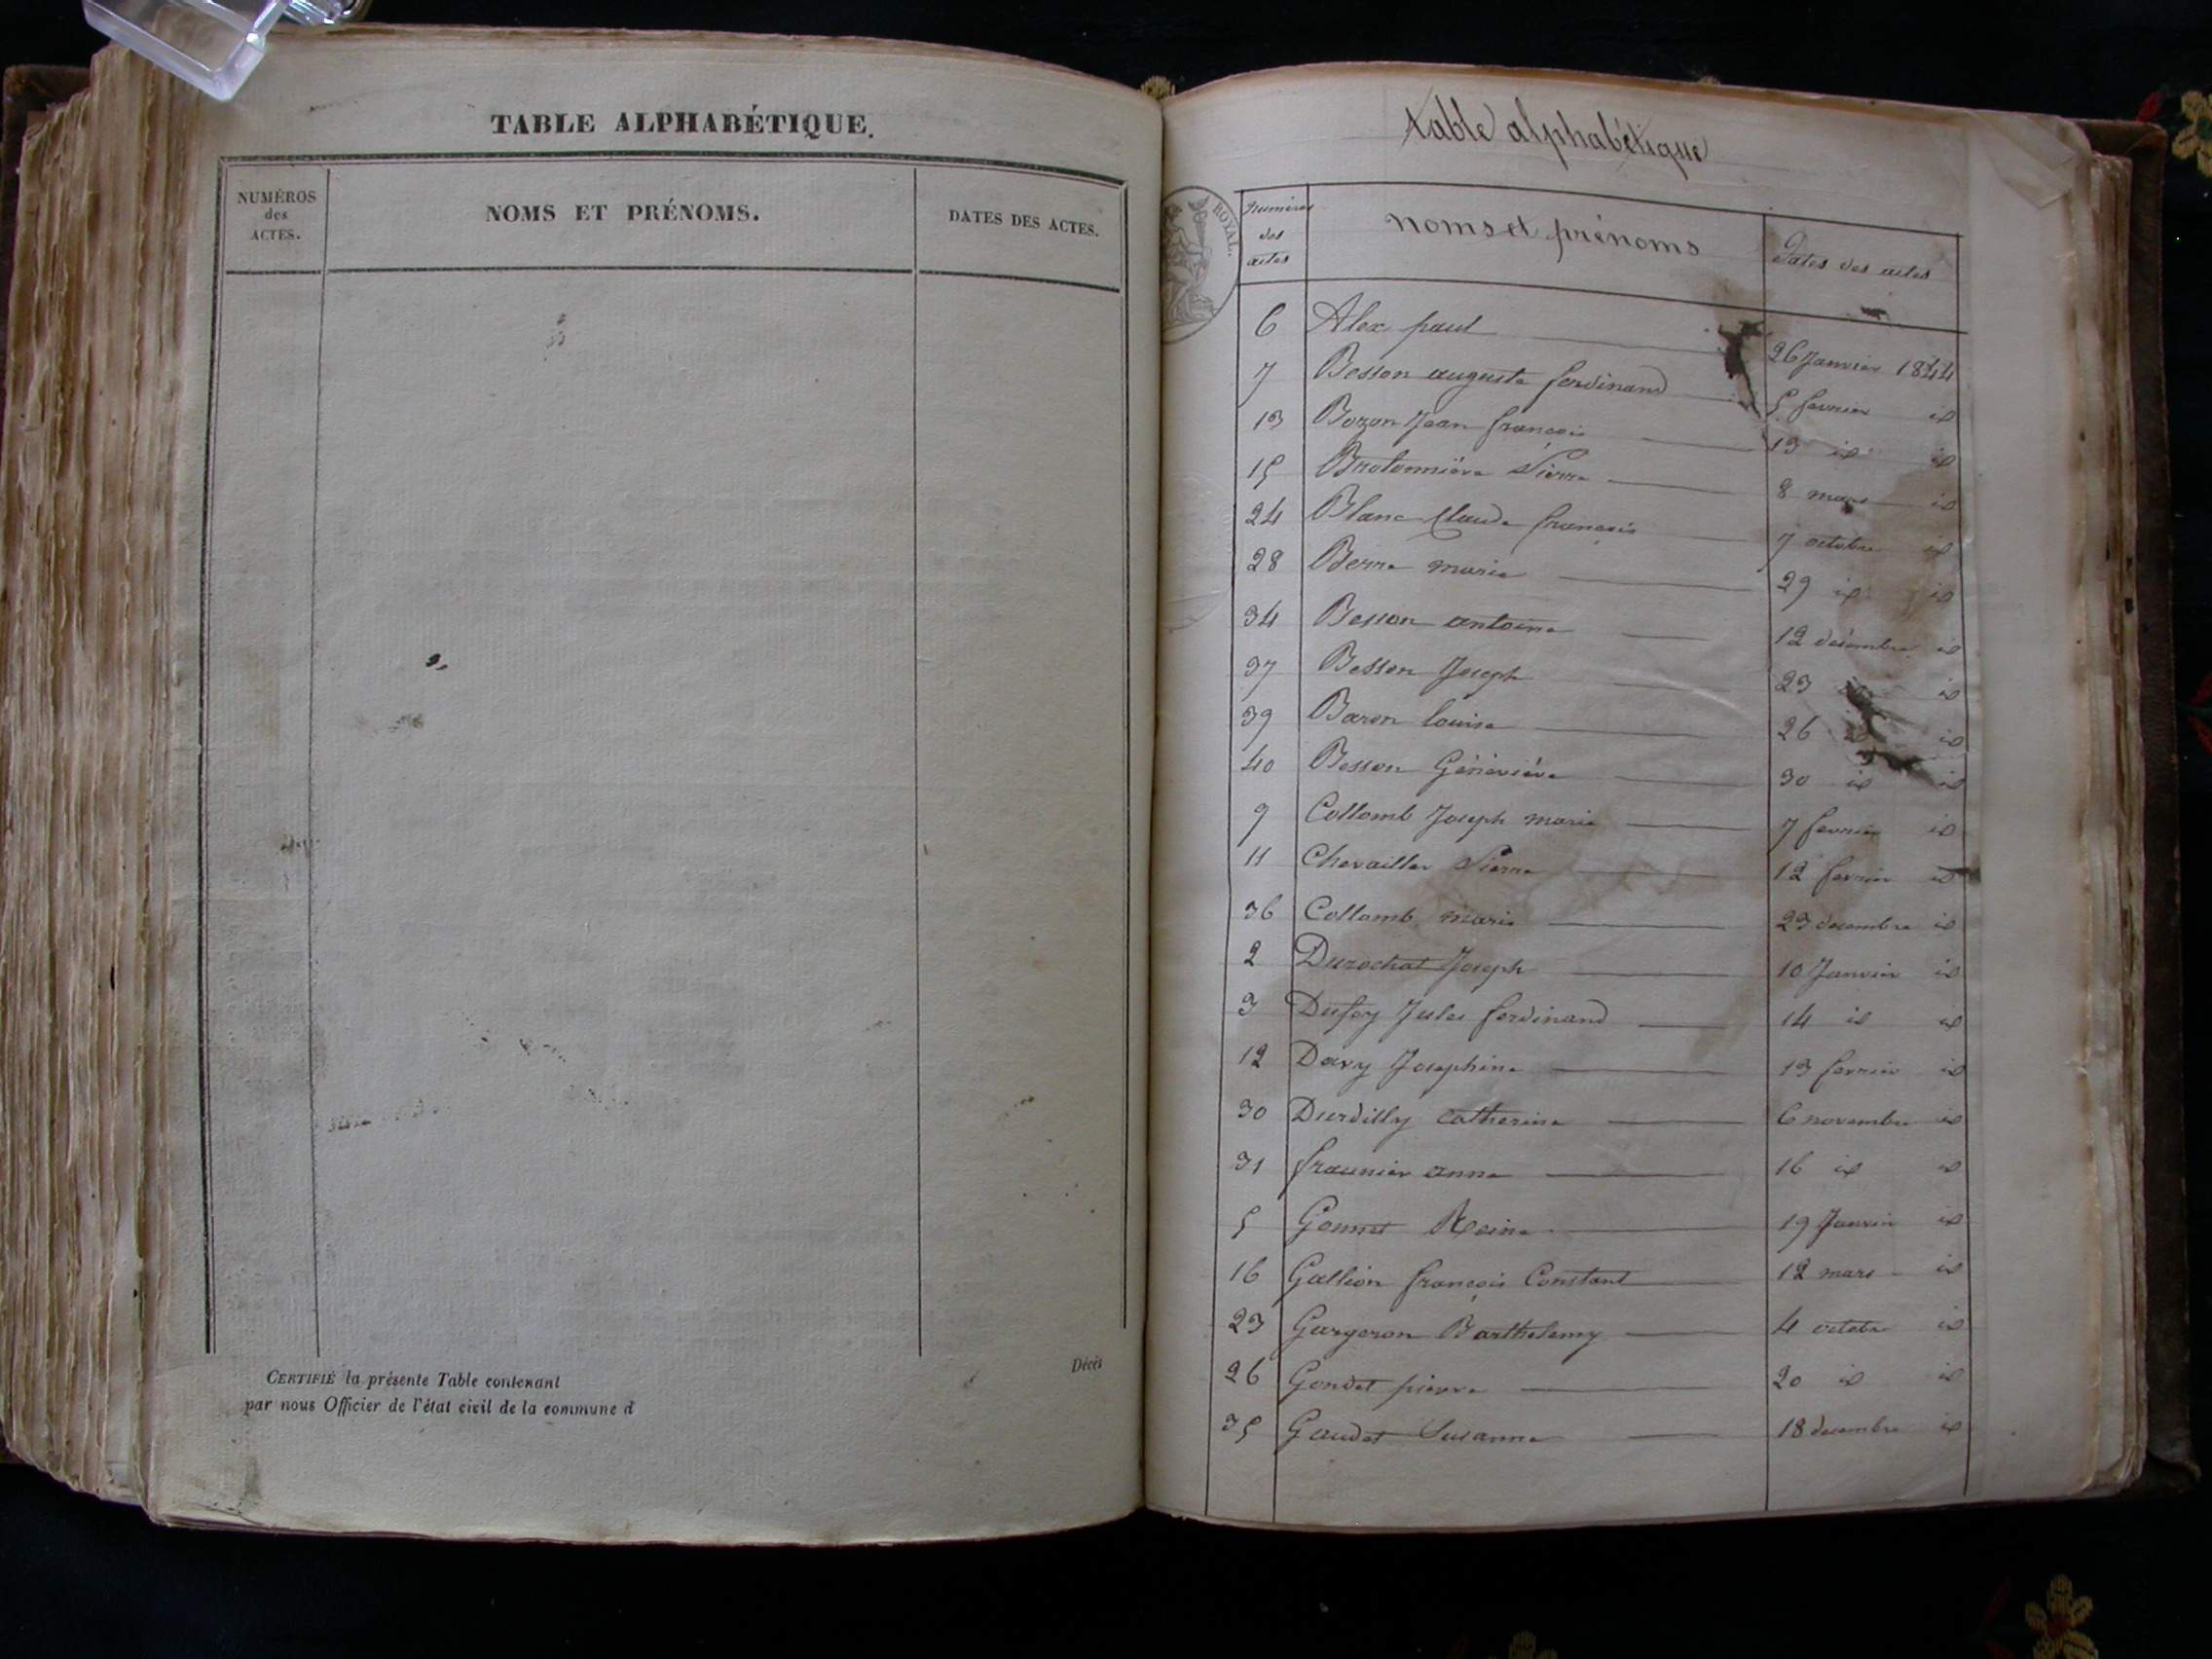 TABLE ALPHABÉTIQUE.
NUMÉROS
des
ACTES.
NOMS ET PRÉNOMS.
DATES DES ACTES.
Décès
CERTIFIÉ la présente Table contenant
par nous Officier de l'état civil de la commune d
table alphabétique
ROYAL.
Numéros
des
actes
noms et prénoms
Dates des actes
6 Alex paul 26 Janvier 1844
7 Besson auguste ferdinand 5 fevrier id
13 Bozon Jean françois 13 id id
15 Brotonnière Pierre 8 mars id
24 Blanc Claude françois 7 octobre id
28 Berne marie 29 id id
34 Besson antoine 12 décembre id
37 Besson Joseph 23 id id
39 Baron louise 26 id id
40 Besson Géneviève 30 id id
9 Collomb Joseph marie 7 fevrier id
11 Chevailler Pierre 12 fevrier id
36 Collomb marie 23 decembre id
2 Durochat Joseph 10 Janvier id
3 Dufoy Jules ferdinand 14 id id
12 Davy Josephine 13 fevrier id
30 Durdilly Catherine 6 novembre id
31 fraunier anne 16 id id
5 Gonnet Reine 19 Janvier id
16 Gallion françois Constant 12 mars id
23 Gargeron Barthelemy 4 octobre id
26 Gondet pierre 20 id id
35 Gaudet Susanne 18 decembre id